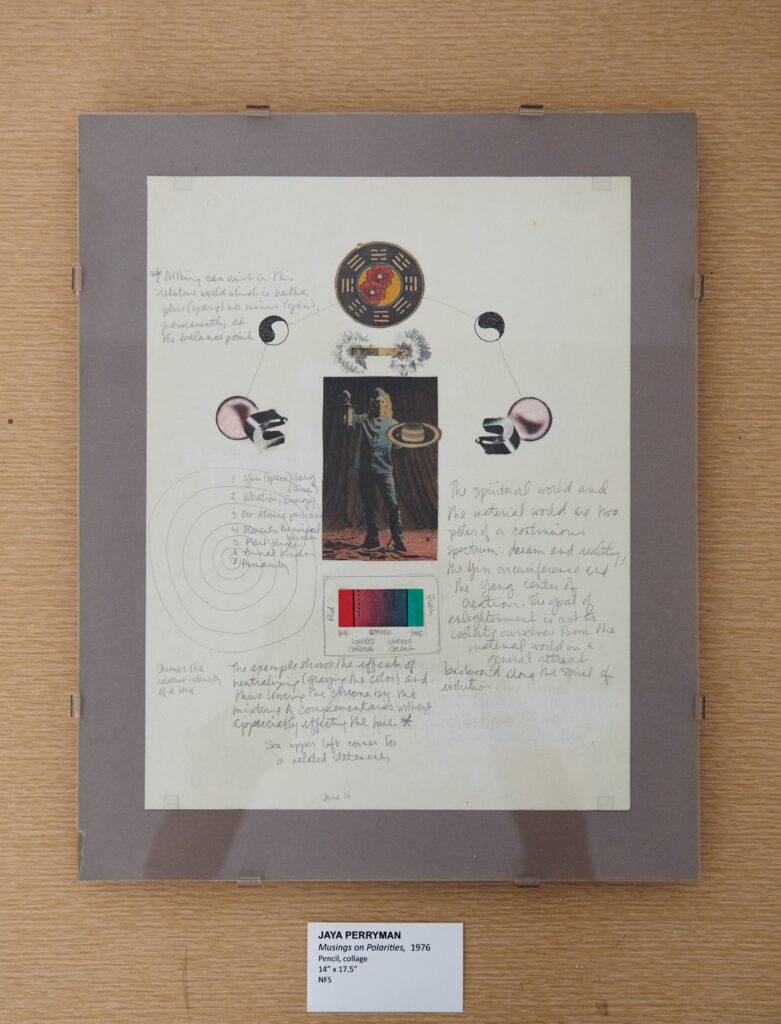 * Nothing can exist in this
relative world which is neither
plus (yang) no minus (yin),
permanently at
the balance point.
1 Yin (Space) Yang
(Time)
2 Vibration, Energy
3 Pre-Atomic particles
4 Elements,
5 Plant Kingdom
6 Animal Kingdom
7 Humanity
The spiritual world and
the material world are two
poles of a continuous
spectrum: dream and reality,
the Yin circumference and
the Yang center of
creation. The goal of
enlightenment is not to
isolate ourselves from the
material world in a
general retreat
backward along the spiral of
evolution.
Red
Green
HUE GRAYED HUE
LOWERED LOWERED
CHROMA CHROMA
Chroma: the
relative intensity
of a hue
The example shows the effects of
neutralizing (graying the color) and
thus lowering the chroma by the
mixture of complementaries without
appreciably effecting the hue. *
See upper left corner for
a related statement
June 16
JAYA PERRYMAN
Musings on Polarities, 1976
Pencil, collage
14” x 17.5”
NFS